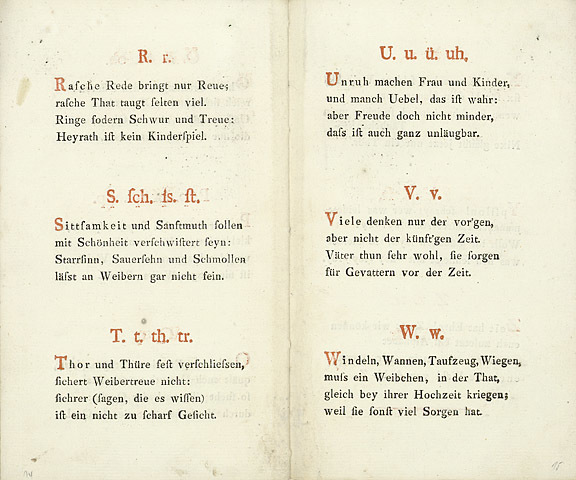 R. r.
Raſche Rede bringt nur Reue;
raſche That taugt ſelten viel.
Ringe fodern Schwur und Treue:
Heyrath iſt kein Kinderſpiel.
S. ſch. ſs. ſt.
Sittſamkeit und Sanftmuth ſollen
mit Schönheit verſchwiſtert ſeyn:
Starrſinn, Sauerſehn und Schmollen
läſst an Weibern gar nicht fein.
T. t. th. tr.
Thor und Thüre feſt verſchlieſsen,
ſichert Weibertreue nicht:
ſichrer (ſagen, die es wiſſen)
iſt ein nicht zu ſcharf Geſicht.
14
U. u. ü. uh.
Unruh machen Frau und Kinder,
und manch Uebel, das iſt wahr:
aber Freude doch nicht minder,
daſs iſt auch ganz unläugbar.
V. v.
Viele denken nur der vor'gen,
aber nicht der künft'gen Zeit.
Väter thun ſehr wohl, ſie ſorgen
für Gevattern vor der Zeit.
W. w.
Windeln, Wannen, Taufzeug, Wiegen,
muſs ein Weibchen, in der That,
gleich bey ihrer Hochzeit kriegen;
weil ſie ſonſt viel Sorgen hat.
15